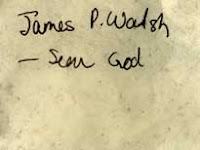 James P. Walsh
— Sex God